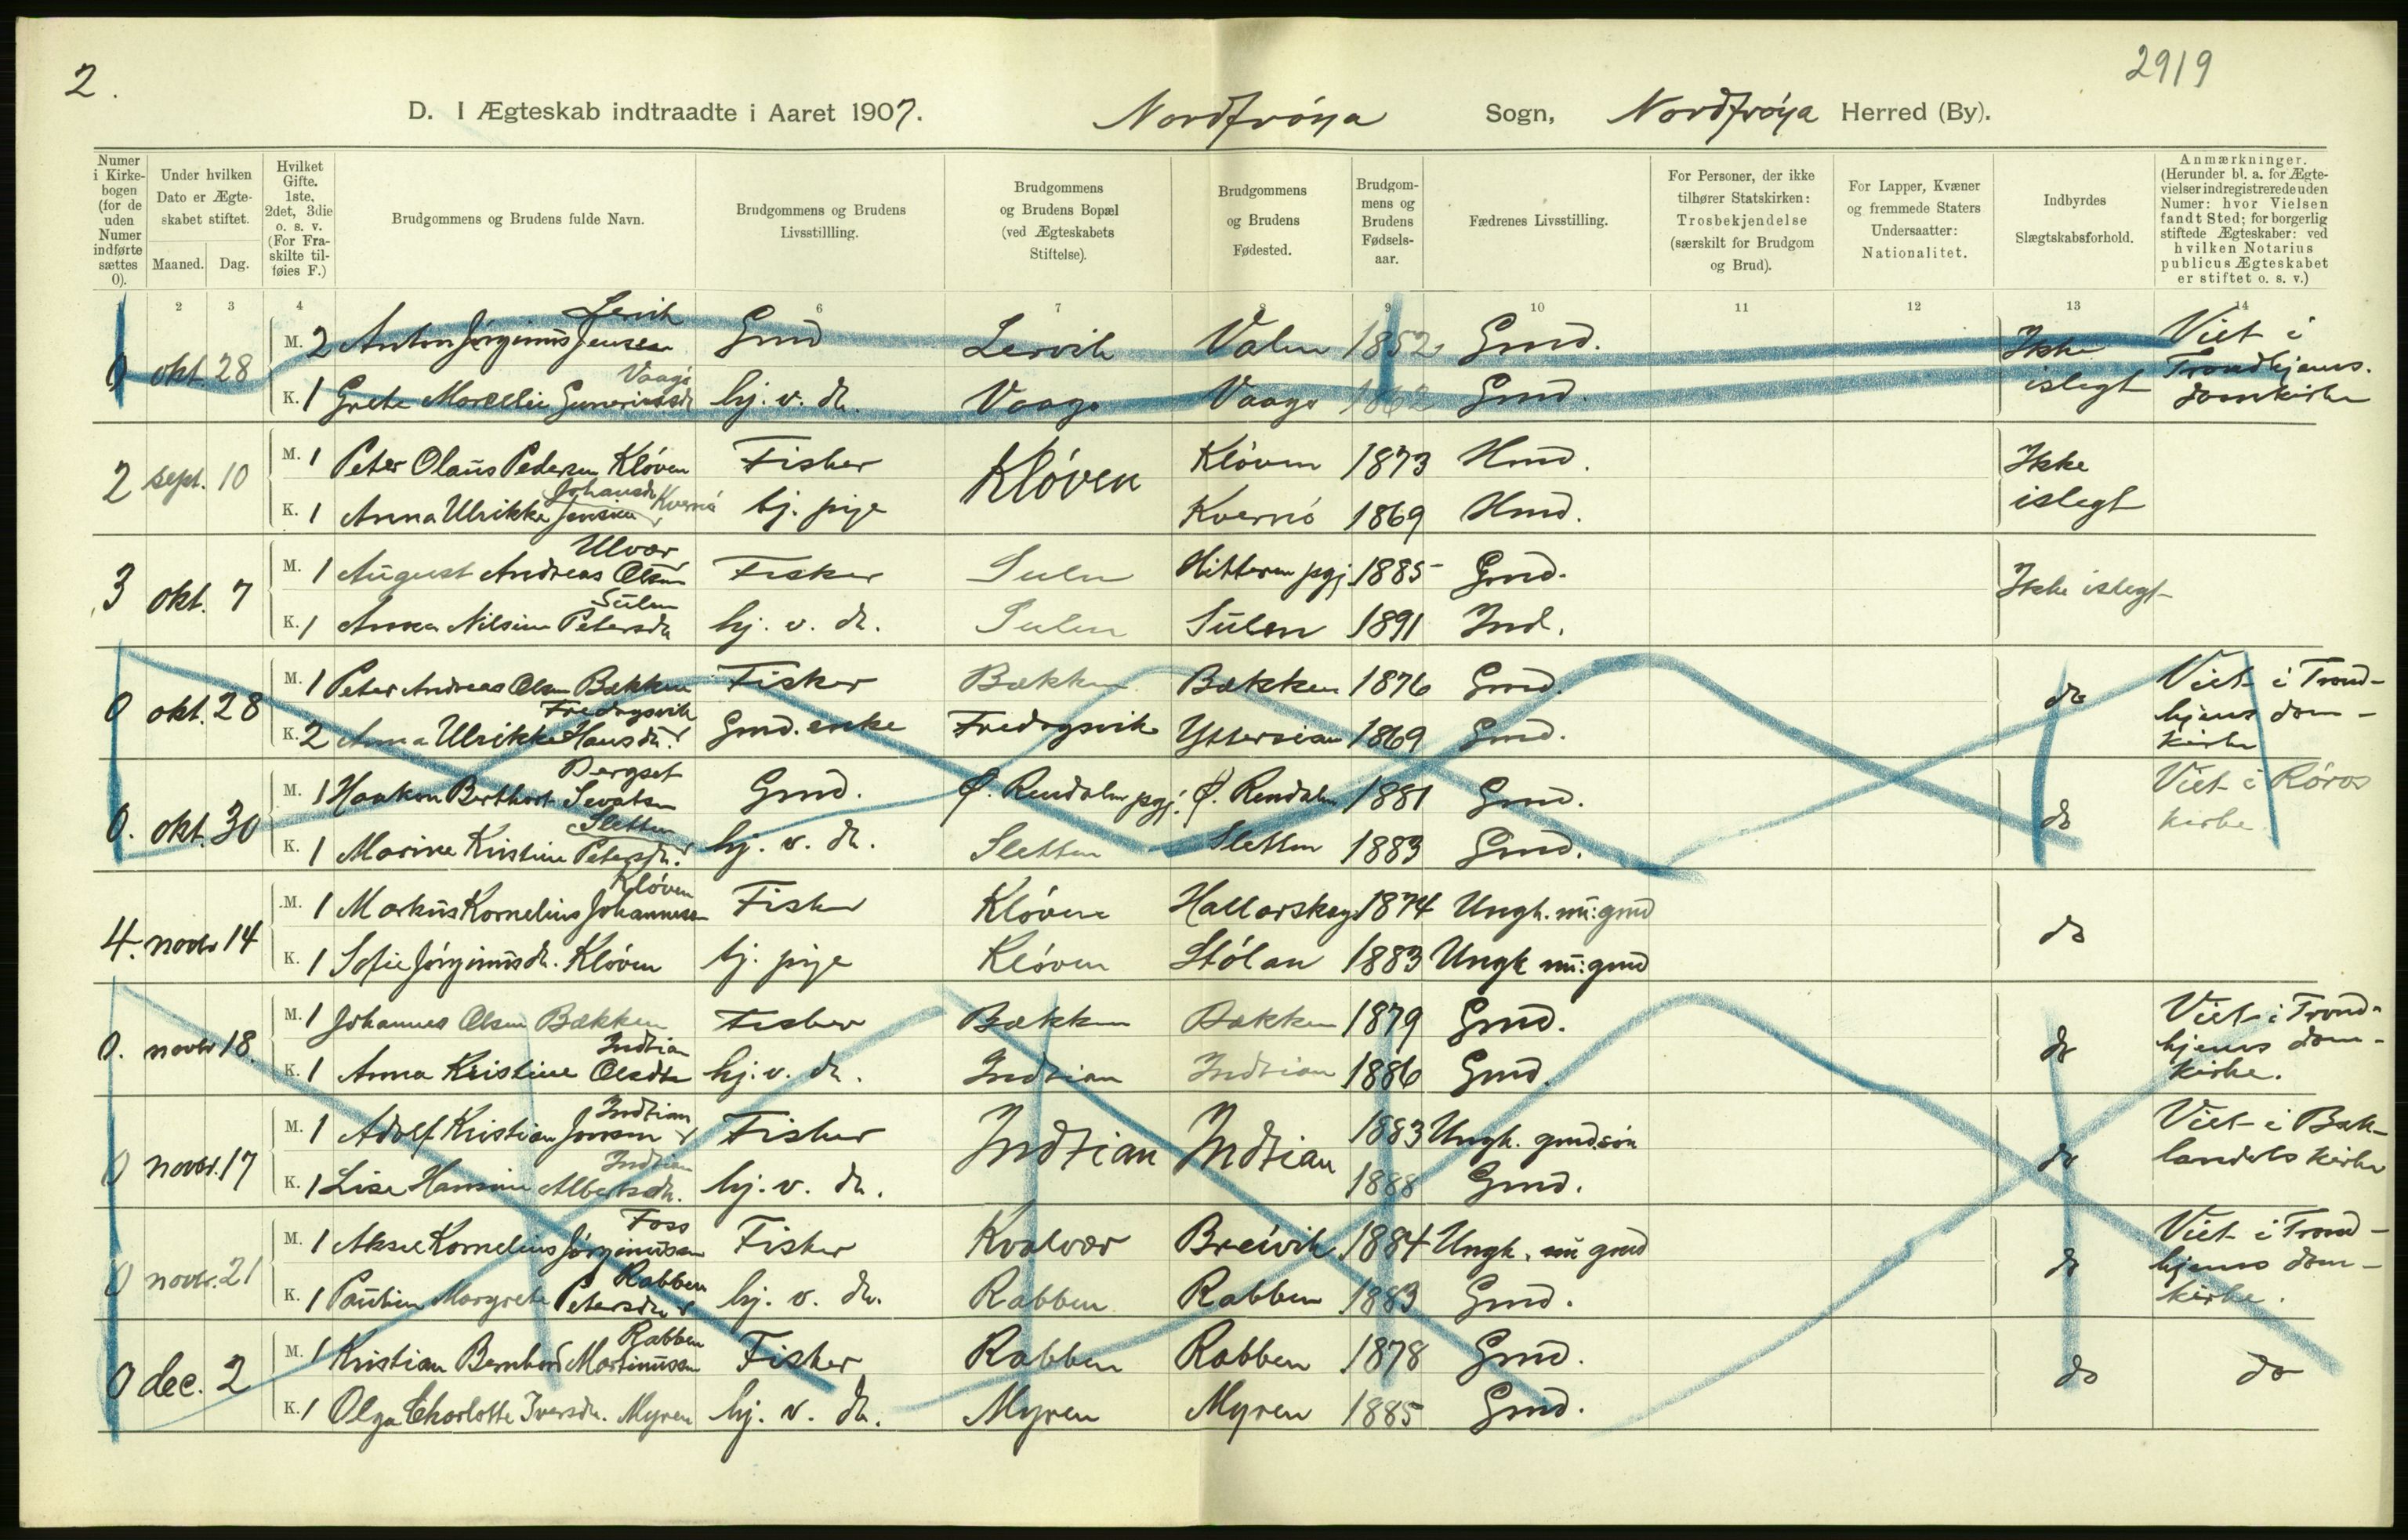 2.
2919
D. I Ægteskab indtraadte i Aaret 1907. Nordfrøya Sogn, Nordfrøya Herred (By).
Numer i Kirkebogen (for de uden Numer indførte sættes 0).
Under hvilken Dato er Ægteskabet stiftet.
Maaned. Dag.
Hvilket Gifte. 1ste, 2det, 3die o. s. v. (For Fraskilte tilføies F.)
Brudgommens og Brudens fulde Navn.
Brudgommens og Brudens Livsstillling.
Brudgommens og Brudens Bopæl (ved Ægteskabets Stiftelse).
Brudgommens og Brudens Fødested.
Brudgommens og Brudens Fødselsaar.
Fædrenes Livsstilling.
For Personer, der ikke tilhører Statskirken: Trosbekjendelse (særskilt for Brudgom og Brud).
For Lapper, Kvæner og fremmede Staters Undersaatter: Nationalitet.
Indbyrdes Slægtskabsforhold.
Anmærkninger. (Herunder bl. a. for Ægtevielser indregistrerede uden Numer: hvor Vielsen fandt Sted; for borgerlig stiftede Ægteskaber: ved hvilken Notarius publicus Ægteskabet er stiftet o. s. v.)
2 3 4 6 7 8 9 10 11 12 13 14
0 okt. 28 M. 2 Anton Jørginus Jensen Lervik Gmd Lervik Valen 1852 Gmd. Ikke islegt Viet i Trondhjems. domkirke
K. 1 Grete Marcelie Vaagø hj. v. dr. Vaagø Vaagø 1862 Gmd.
2 sept. 10 M. 1 Peter Olaus Pedersen Kløven Fisker Kløven Kløven 1873 Hmd. Ikke islegt
K. 1 Anna Ulrikke Jensine Johansdr Kvernø tj. pige Kvernø 1869 Hmd.
3 okt. 7 M. 1 August Andreas Olsen Ulvær Fisker Sulen Hitteren pgj 1885 Gmd. Ikke islegt
K. 1 Anna Nilsine Petersdr Sulen hj. v. dr. Sulen Sulen 1891 Ind.
0 okt. 28 M. 1 Peter Andreas Olsen Bekken Fisker Bekken Bekken 1876 Gmd. do Viet i Trondhjems domkirke
K. 2 Anna Ulrikke Hansdr. Fredagsvik Gmd. enke Fredagsvik Yttersian 1869 Gmd.
0. okt. 30 M. 1 Haakon Berthart Sevalsen Bergset Gmd. Ø. Rendalen pgj. Ø. Rendalen 1881 Gmd. do Viet i Røros kirke
K. 1 Marine Kristine Petersdr. Sletten hj. v. dr. Sletten Sletten 1883 Gmd.
4. novbr 14 M. 1 Markus Kornelius Johannesen Kløven Fisker Kløven Hallarskag 1874 Ungk. nu: gmd do
K. 1 Sofie Jørginusdr. Kløven tj. pige Kløven Stølan 1883 Ungk nu: gmd
0. novbr 18. M. 1 Johannes Olsen Bekken Fisker Bekken Bekken 1879 Gmd. do Viet i Trondhjems domkirke.
K. 1 Anna Kristine Olsdtr Indtian hj. v. dr. Indtian Indtian 1886 Gmd.
0 novbr. 17 M. 1 Adolf Kristian Jensen Indtian Fisker Indtian Indtian 1883 Ungk. gmdsøn do Viet i Baklandets kirke
K. 1 Lise Hansine Albertsdr. Indtian hj. v. dr. 1888 Gmd.
0 novbr. 21 M. 1 Aksel Kornelius Jørginussen Foss Fisker Kvalvær Breivik 1884 Ungk. nu gmd do Viet i Trondhjems domkirke.
K. 1 Pauline Margrete Petersdr Rabben hj. v. dr. Rabben Rabben 1883 Gmd.
0 dec. 2 M. 1 Kristian Bernhard Martinussen Rabben Fisker Rabben Rabben 1878 Gmd. do do
K. 1 Olga Charlotte Iversdr. Myren hj. v. dr. Myren Myren 1885 Gmd.